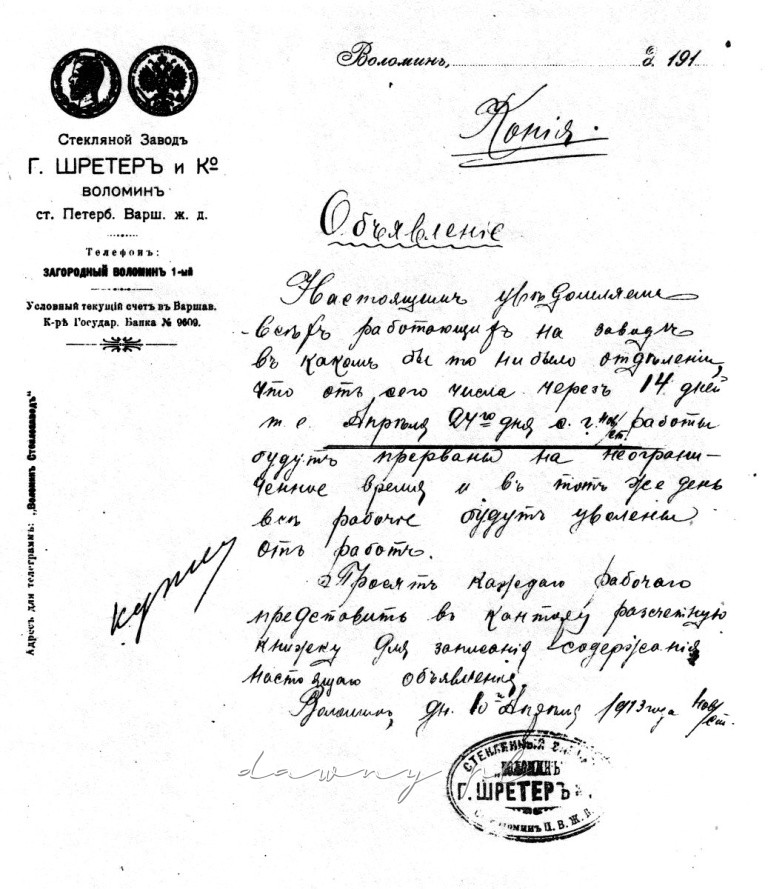 Воломинъ, г. 191
Копія.
Стекляной Заводъ
Г. ШРЕТЕРЪ и Ко
ВОЛОМИНЪ
ст. Петерб. Варш. ж. д.
Телефонъ:
ЗАГОРОДНЫЙ ВОЛОМИНЪ 1-ый
Условный текущій счетъ въ Варшав.
К-рѣ Государ. Банка № 9609.
Адресъ для телеграммъ: „Воломинъ Стеклозаводъ"
Объявленіе
Настоящимъ увѣдомляемъ
всѣхъ работающихъ на заводѣ
въ какомъ бы то ни было отдѣленіи,
что отъ сего числа черезъ 14 дней
т. е. Апрѣля 24го дня с. г. нов. ст. работы
будутъ прерваны на неограни-
ченное время и въ тотъ же день
всѣ рабочіе будутъ уволены
отъ работъ.
Просятъ каждаго рабочаго
представить въ кантору разсчетную
книжку для записанія содержанія
настоящаго объявленія
Воломинъ, дн. 10 Апрѣля 1913 года нов. ст.
dawny
СТЕКЛЕННЫЙ
„ВОЛОМИНЪ"
Г. ШРЕТЕРЪ
П. В. Ж. Д.